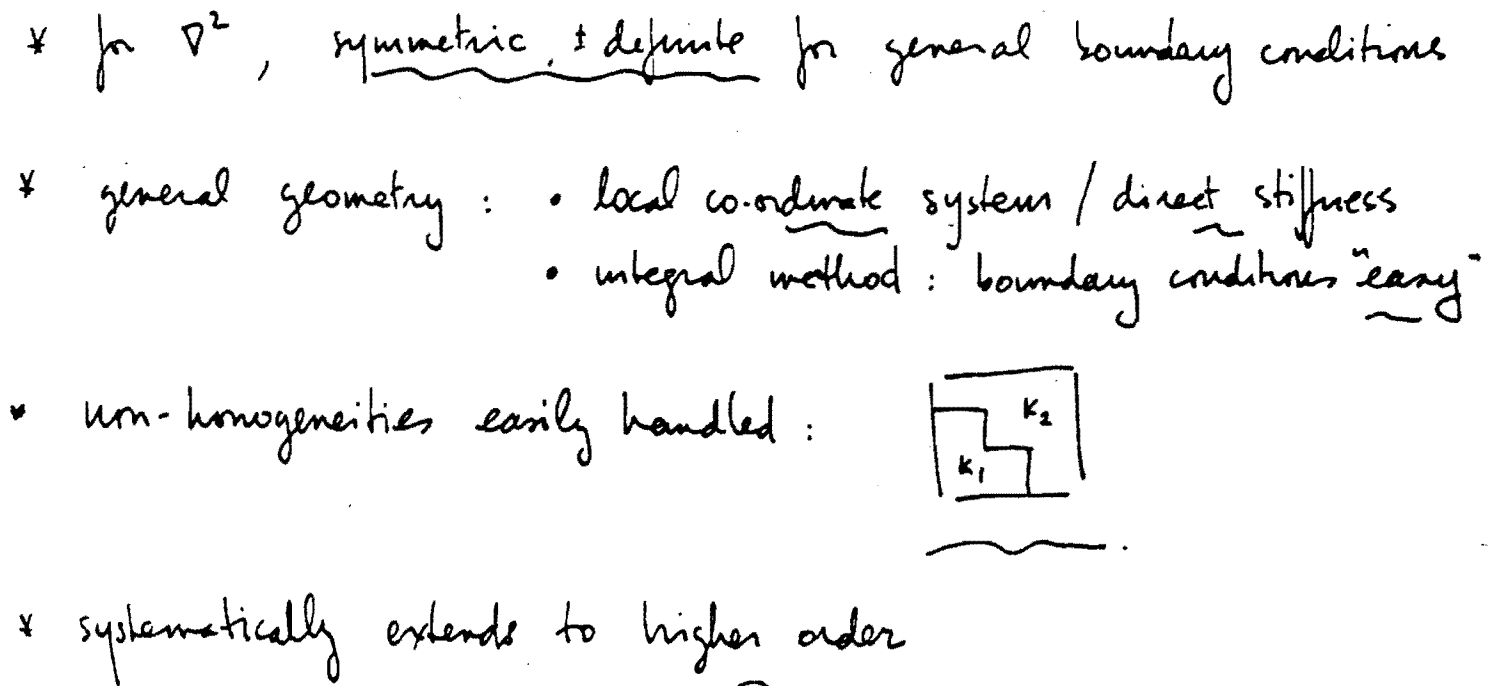 * for ∇², symmetric, ± definite for general boundary conditions
* general geometry : • local co-ordinate system / direct stiffness
• integral method : boundary conditions "easy"
* non-homogeneities easily handled :
K₂
K₁
* systematically extends to higher order